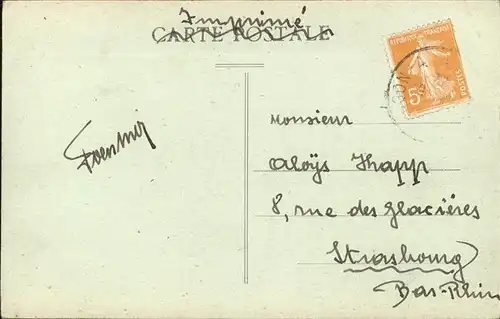 Imprimé
CARTE POSTALE
REPUBLIQUE FRANCAISE
POSTES
5c
Monsieur
Aloÿs Khapp
8, rue des Glacières
Strasbourg
Bas-Rhin